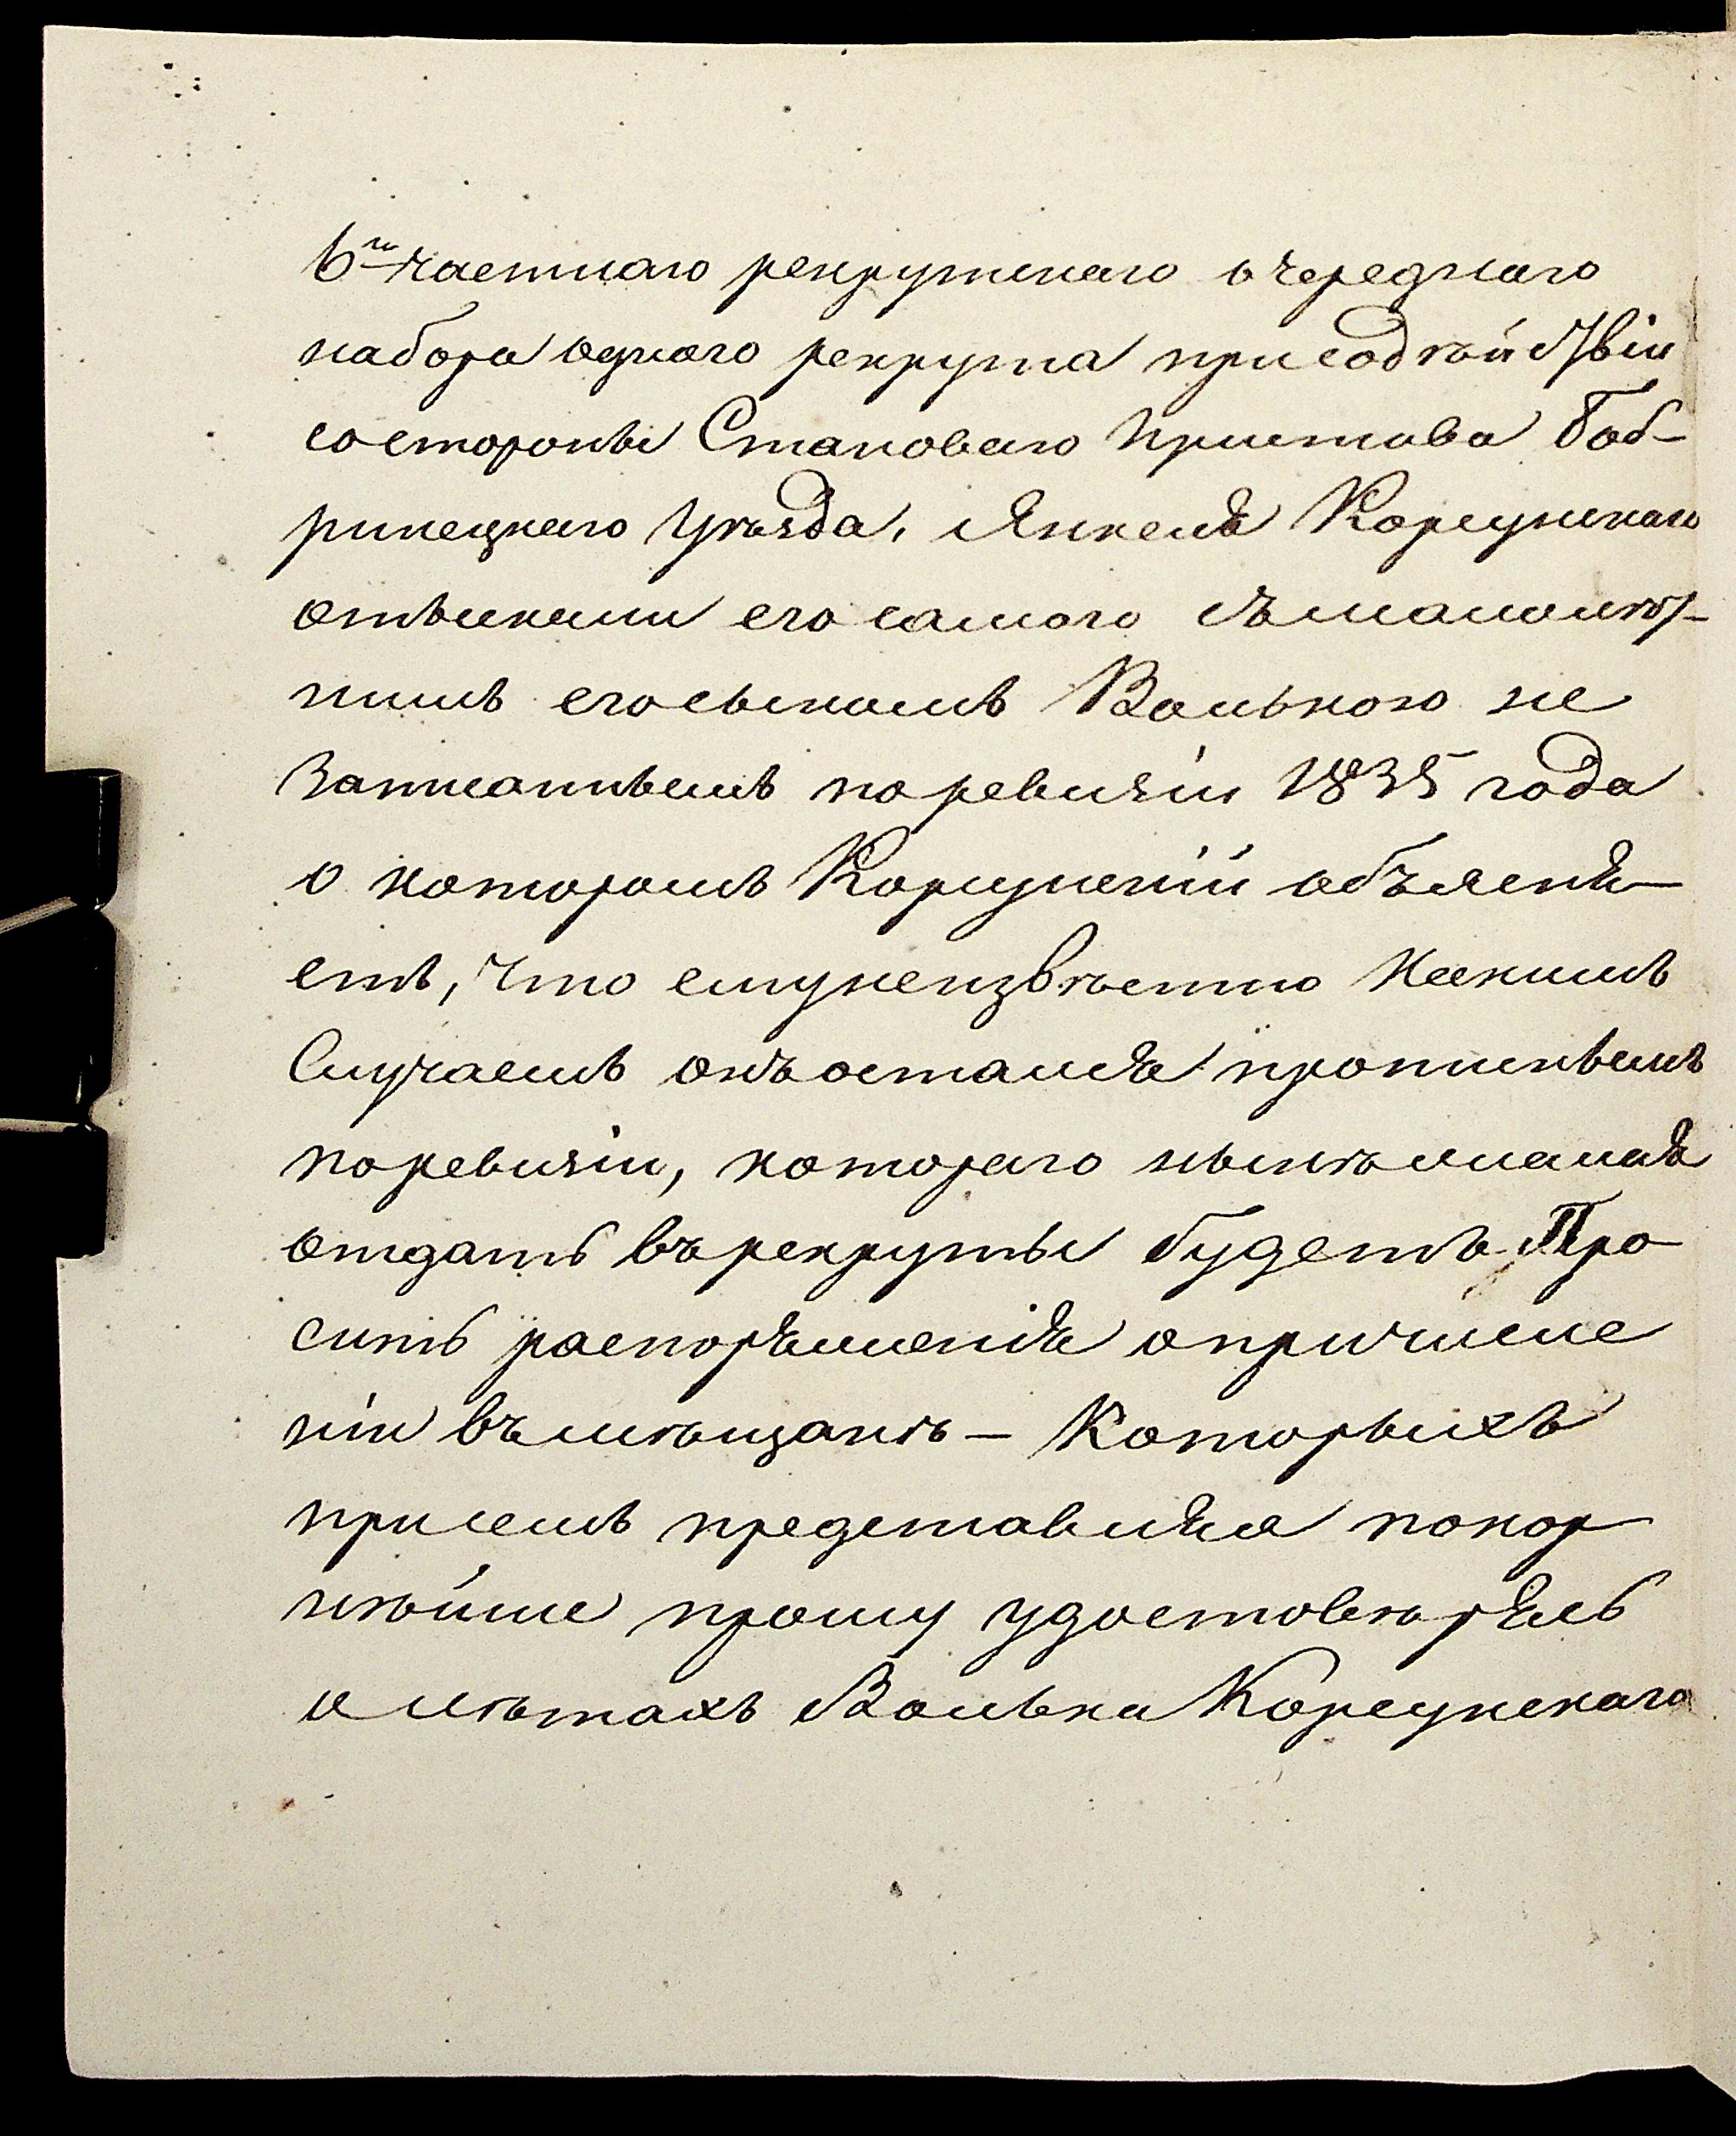 6<sup>го</sup> частнаго рекрутскаго очереднаго
набора одного рекрута при содѣйствіи
со стороны Становаго Пристава Боб-
ринецкаго Уѣзда, Янкеля Корсунскаго
отыскали его самого съ малолѣт-
нимъ его сыномъ Волькою не
записаннымъ по ревизіи 1835 года
о которомъ Корсунскій объясня-
етъ, что ему неизвѣстно какимъ
случаемъ онъ остался пропискнымъ
по ревизіи, котораго нынѣ желая
отдать въ рекруты будетъ про
сить распоряженія о причисле
ніи въ мѣщанѣ — Которыхъ
при семъ представляя покор
нѣйше прошу удостовѣрясь
о лѣтахъ Волька Корсунскаго